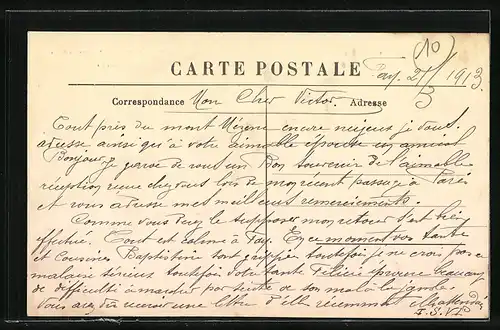 (10)
CARTE POSTALE
Fay. 21/5 1913.
Correspondance Mon Cher Victor. Adresse
Tout près du mont Mézenc encore neigeux je vous
adresse ainsi qu'à votre aimable épouse un amical
Bonjour. Je garde de vous un Bon souvenir de l'aimable
réception reçue chez vous lors de mon récent passage à Paris
et vous adresse mes meilleurs remerciements.
Comme vous devez le supposer mon retour s'est bien
effectué. Tout est calme à Fay. En ce moment vos tante
et cousine Baptistine sont grippées toutefois je ne crois pas
malaise sérieux toutefois votre tante Félicie éprouve beaucoup
de difficulté à marcher par suite de son mal à la jambe
Vous avez dû recevoir une lettre d'elle récemment
T.S.V.P.